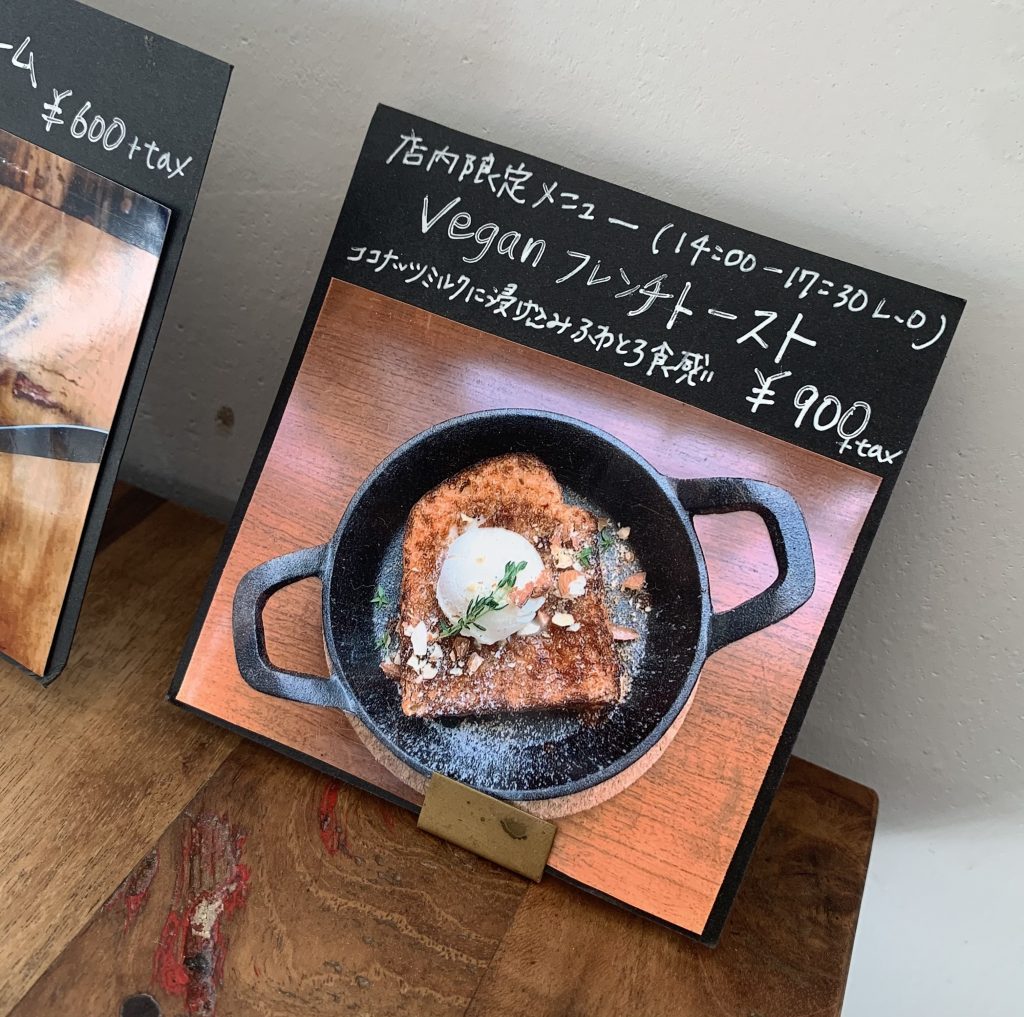 ーム
¥600+tax
店内限定メニュー(14:00-17:30 L.O)
Vegan フレンチトースト
ココナッツミルクに浸け込みふわとろ食感!!
¥900+tax